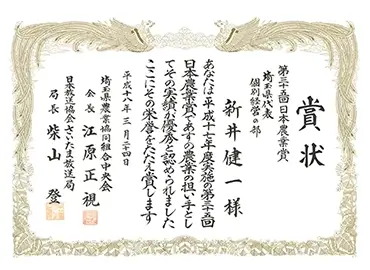 賞状
第三十五回日本農業賞
埼玉県代表
個別経営の部
新井健一様
あなたは平成十七年度実施の第三十五回
日本農業賞であすの農業の担い手とし
てその実績が優秀と認められました
ここにその栄誉をたたえ賞します
平成十八年三月二十四日
埼玉県農業協同組合中央会
会長 江原正視
日本放送協会さいたま放送局
局長 柴山登